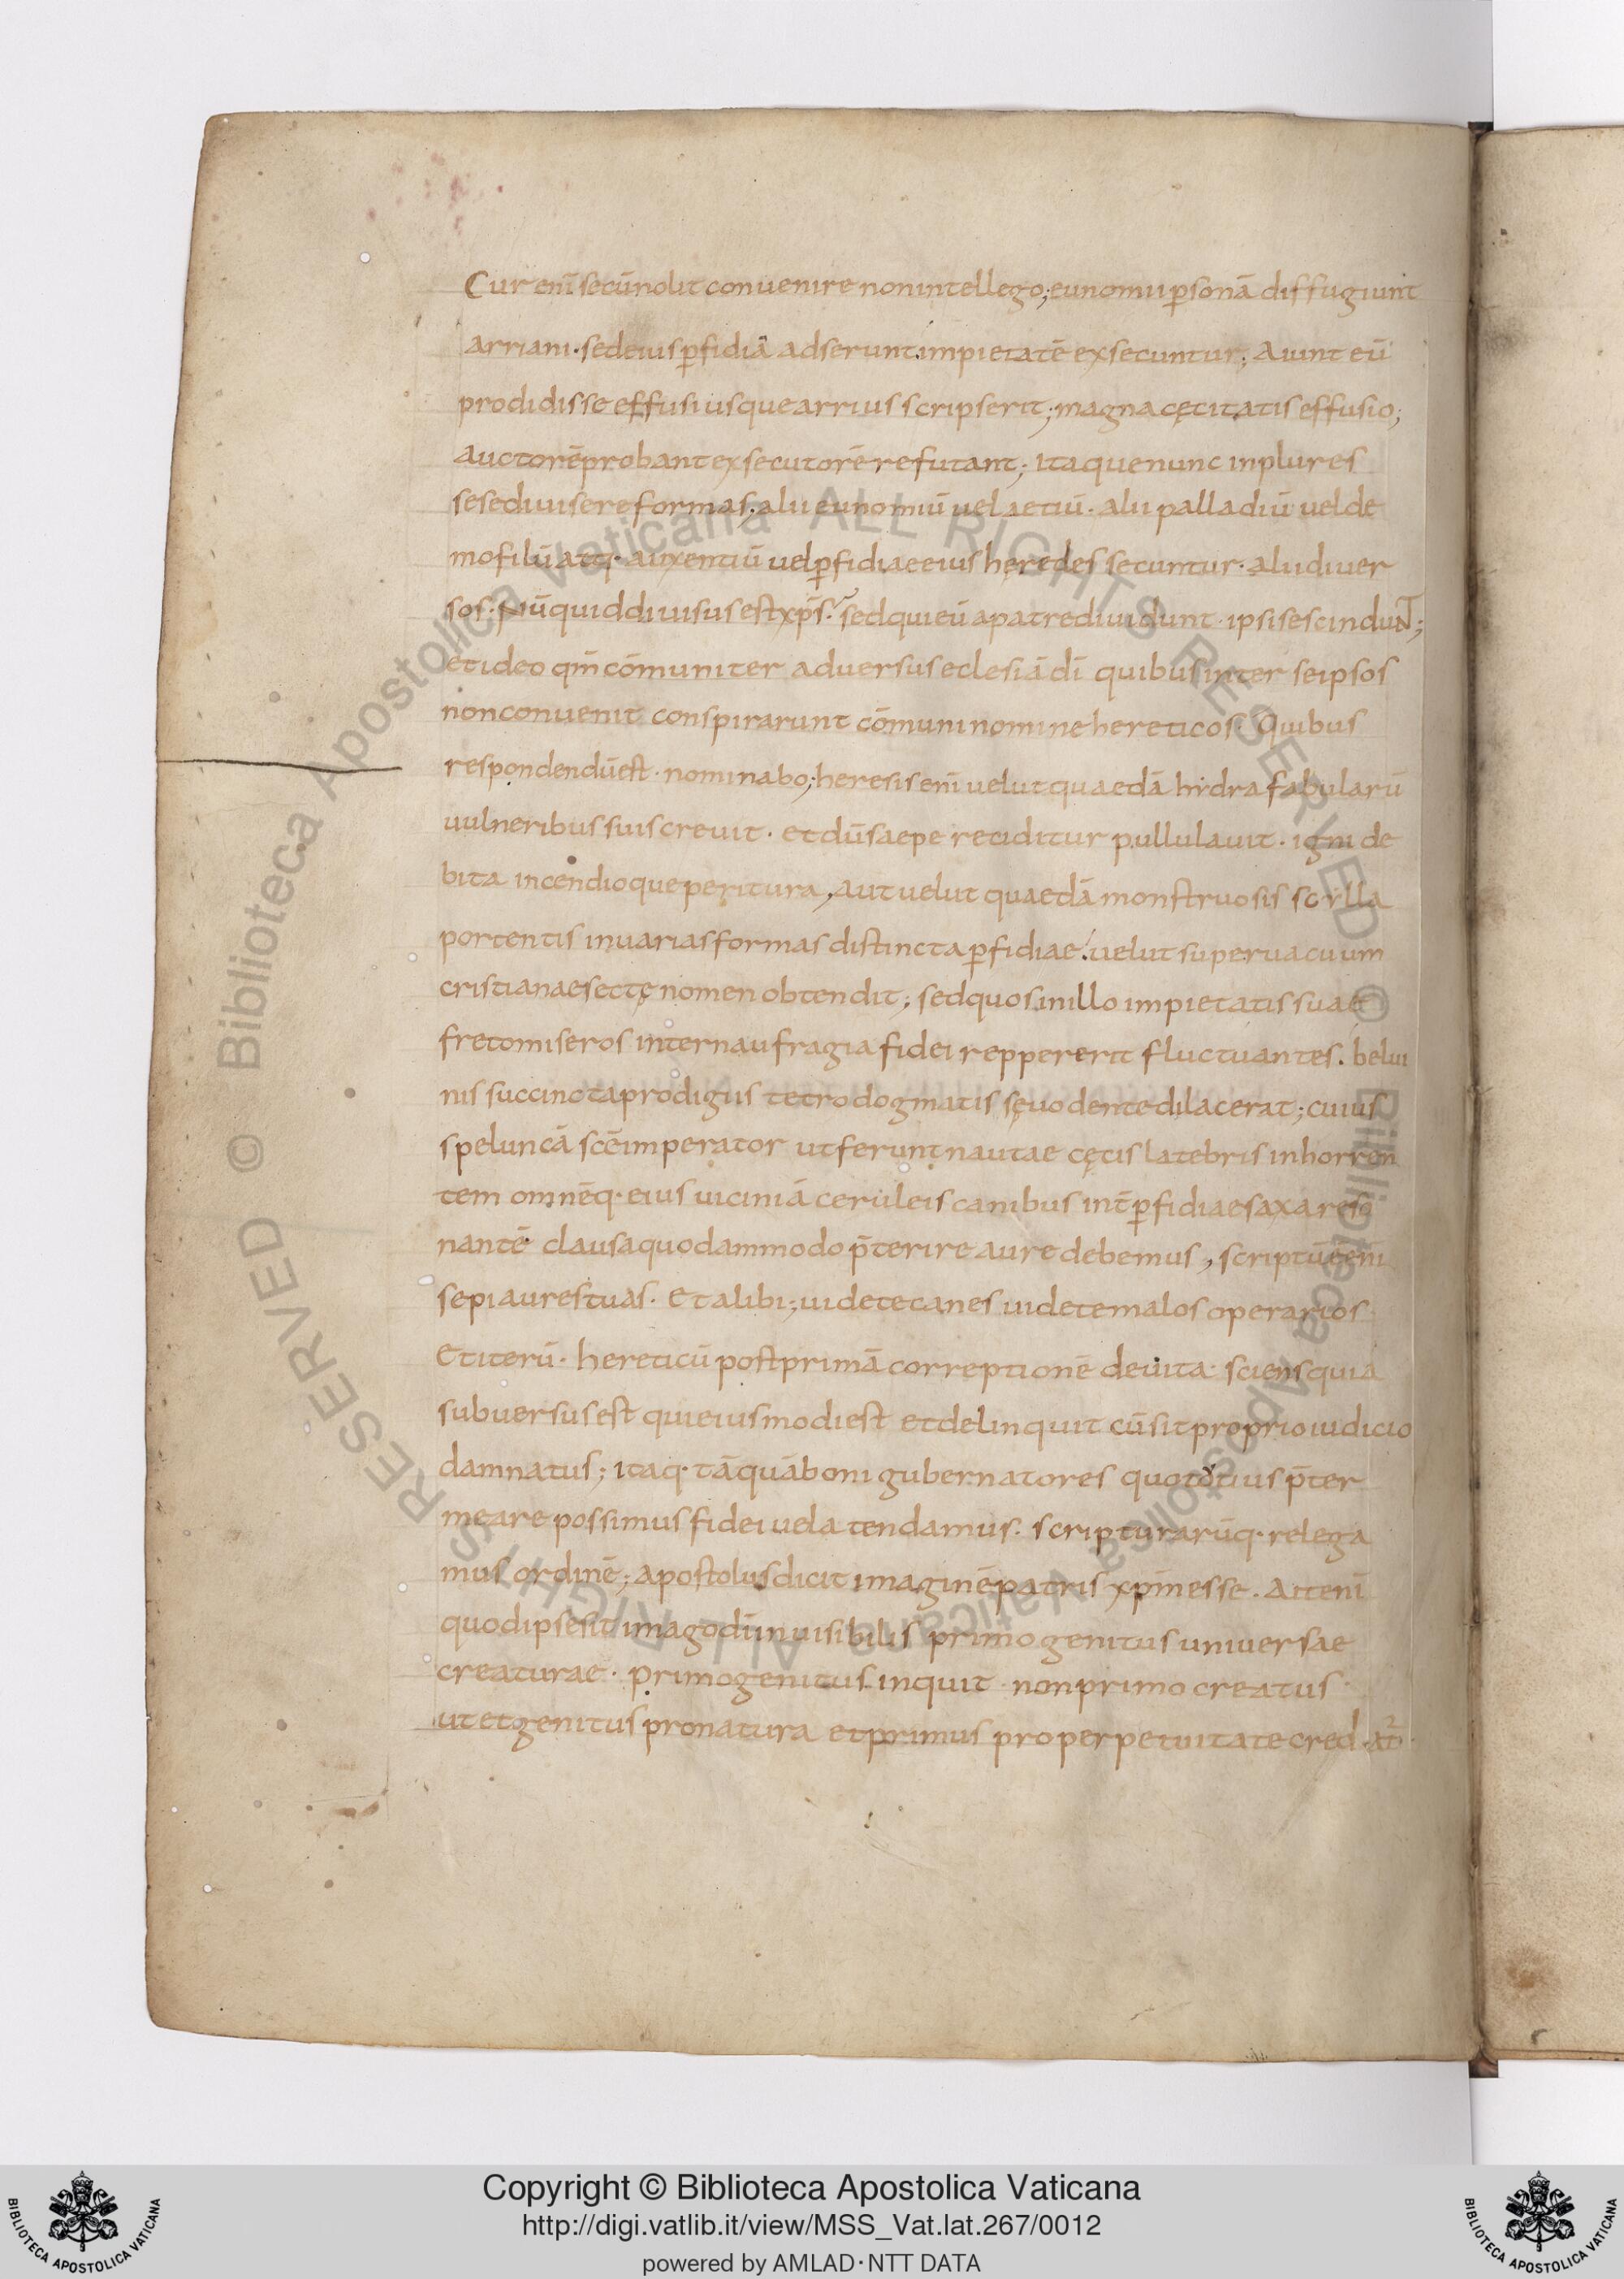 Cur enī secū nolit conuenire non intellego; eunomii ꝑsonā diffugiunt
arriani · sed eius ꝑfidiā adserunt. impietatē exsecuntur; Aiunt eū
prodidisse effusius que arrius scripserit; magna cęcitatis effusio;
auctorē probant exsecutorē refutant; itaque nunc in plures
sese diuisere formas; alii eunomiū uel aetiū · alii palladiū uel de
mofilū atq· auxentiū uel ꝑfidiae eius heredes secuntur · alii diuer
sos: Nūquid diuisus est xp̄s? sed qui eū a patre diuidunt · ipsi se scindunt;
et ideo qm̄ cōmuniter aduersus eclesiā dī quibus inter se ipsos
non conuenit conspirarunt cōmuni nomine hereticos · Quibus
respondendū est · nominabo; heresis enī uelut quaedā hẏdra fabularū
uulneribus suis creuit · et dū saepe reciditur pullulauit · igni de
bita incendioque peritura, aut uelut quaedā monstruosis scẏlla
portentis in uarias formas distincta ꝑfidiae. uelut superuacuum
cristianae sectę nomen obtendit; sed quos in illo impietatis suae
freto miseros inter naufragia fidei reppererit fluctuantes. belui
nis succincta prodigiis tetro dogmatis sęuo dente dilacerat; cuius
speluncā scē imperator ut ferunt nautae cęcis latebris inhorren
tem omnēq· eius uiciniā ceruleis canibus int̄ ꝑfidiae saxa reso
nantē clausa quodammodo p̄terire aure debemus, scriptū ē enī
sepi aures tuas · Et alibi; uidete canes uidete malos operarios
Et iterū · hereticū post primā correptionē deuita · sciens quia
subuersus est qui eiusmodi est et delinquit cū sit proprio iudicio
damnatus; itaq· tāquā boni gubernatores quo totius p̄ter
meare possimus fidei uela tendamus · scripturarūq· relega
mus ordinē; apostolus dicit imaginē patris xp̄m esse. Ait enī
quod ipse sit imago dī inuisibilis primogenitus uniuersae
creaturae · primogenitus inquit · non primo creatus ·
ut et genitus pro natura et primus pro perpetuitate cred·at²·
© Biblioteca Apostolica Vaticana ALL RIGHTS RESERVED
© Biblioteca Apostolica Vaticana ALL RIGHTS RESERVED
BIBLIOTECA APOSTOLICA VATICANA
Copyright © Biblioteca Apostolica Vaticana
http://digi.vatlib.it/view/MSS_Vat.lat.267/0012
powered by AMLAD·NTT DATA
BIBLIOTECA APOSTOLICA VATICANA